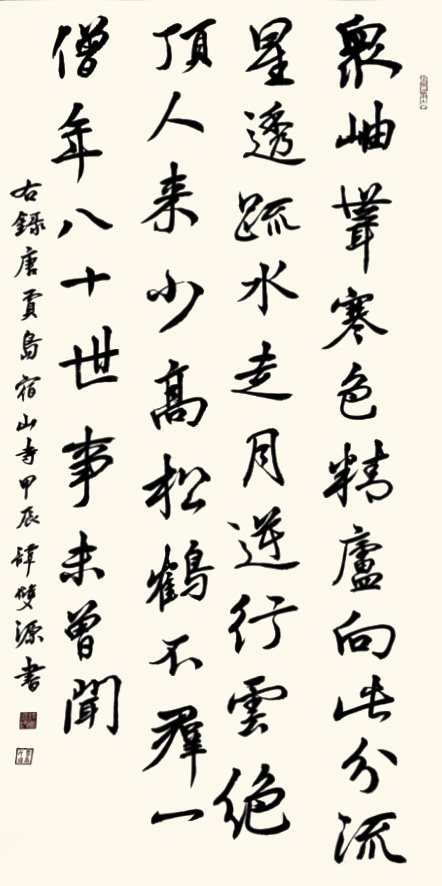 眾岫聳寒色精廬向此分流
星透疏水走月逆行雲絕
頂人来少高松鶴不羣一
僧年八十世事未曾聞
右錄唐賈島宿山寺甲辰譚雙源書